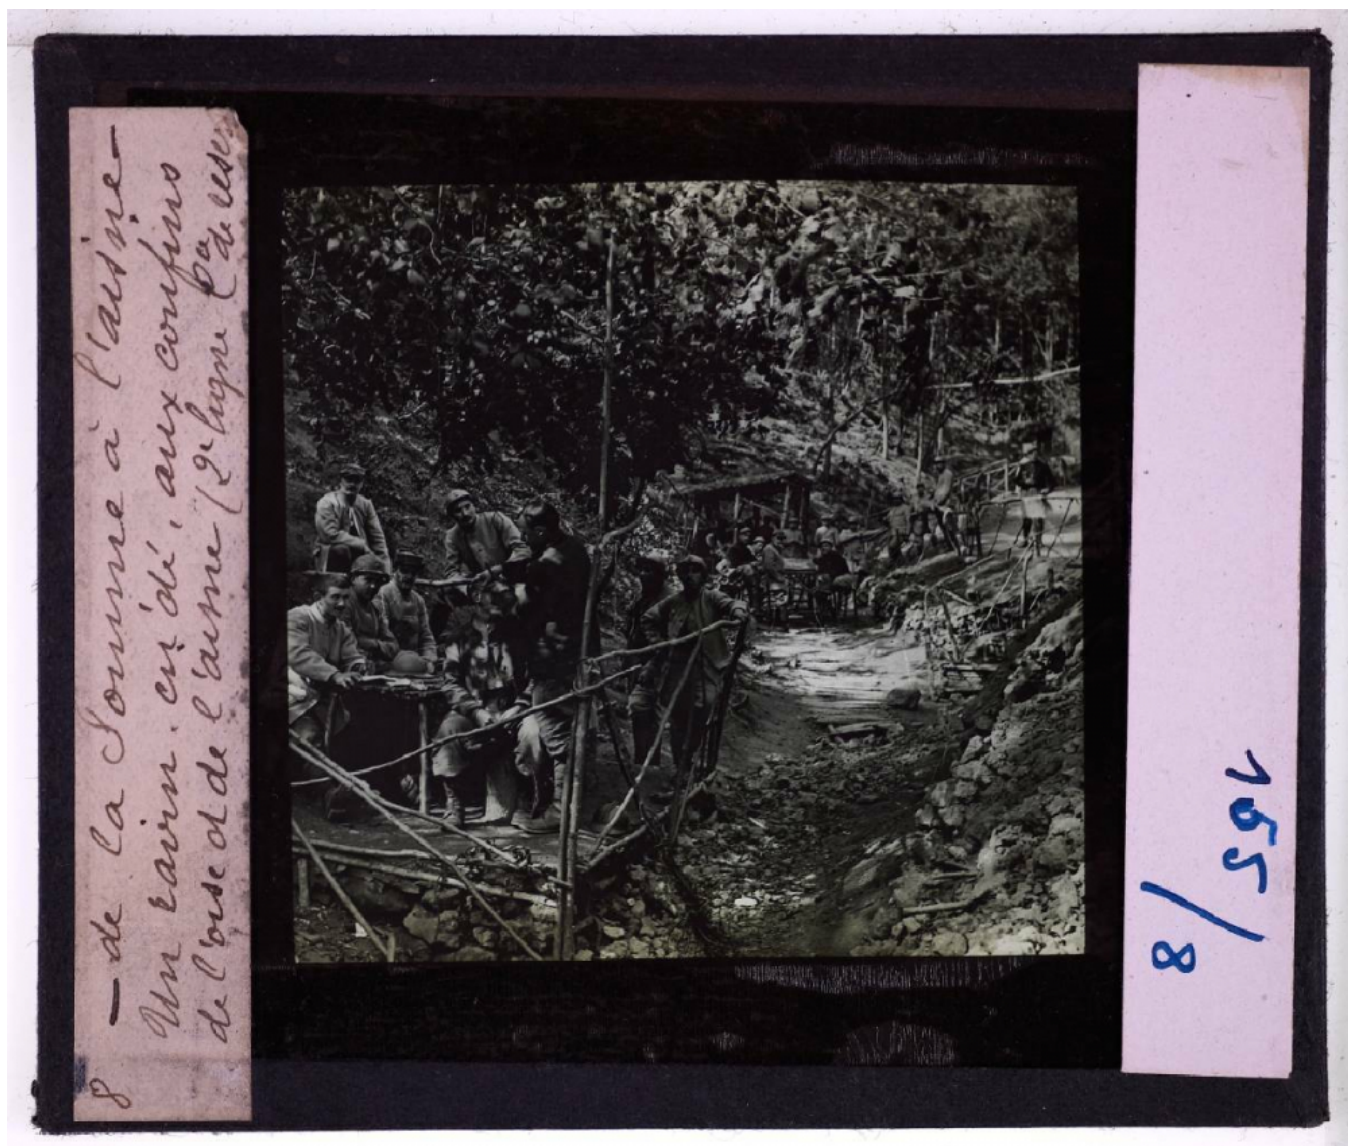 8 — de la Somme à l'aisne —
Un ravin
aux confins
de l'oise et de l'aisne (2e ligne
8/
165